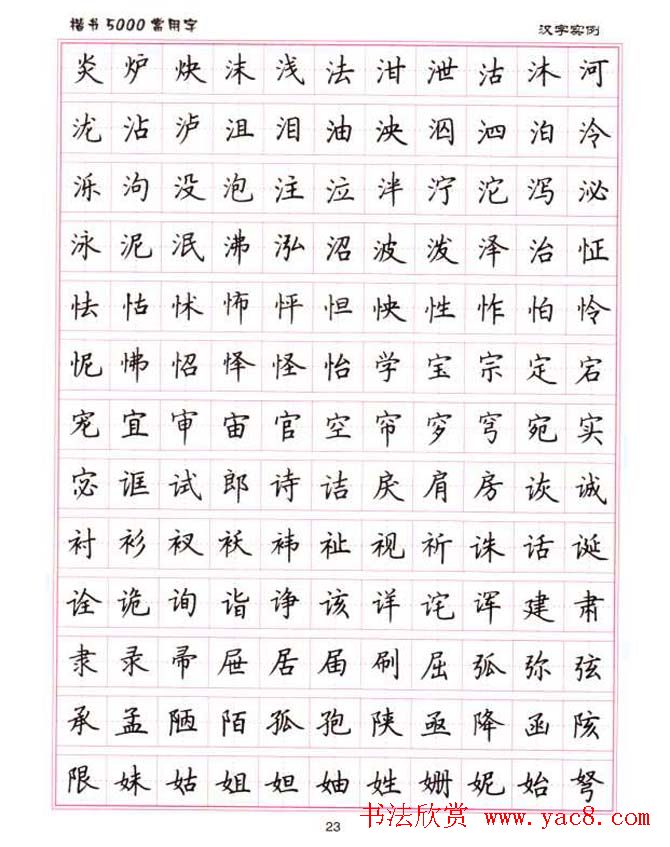 楷书5000常用字 汉字实例
炎炉炔沫浅法泔泄沽沭河
泷沾泸沮泪油泱泅泗泊泠
泺沟没泡注泣泮泞沱泻泌
泳泥泯沸泓沼波泼泽治怔
怯怙怵怖怦怛怏性怍怕怜
怩怫怊怿怪怡学宝宗定宕
宠宜审宙官空帘穸穹宛实
宓诓试郎诗诘戾肩房诙诚
衬衫衩袄祎祉视祈诛话诞
诠诡询诣诤该详诧诨建肃
隶录帚屉居届刷屈弧弥弦
承孟陋陌孤孢陕亟降函陔
限妹姑姐妲妯姓姗妮始弩
23
书法欣赏 www.yac8.com